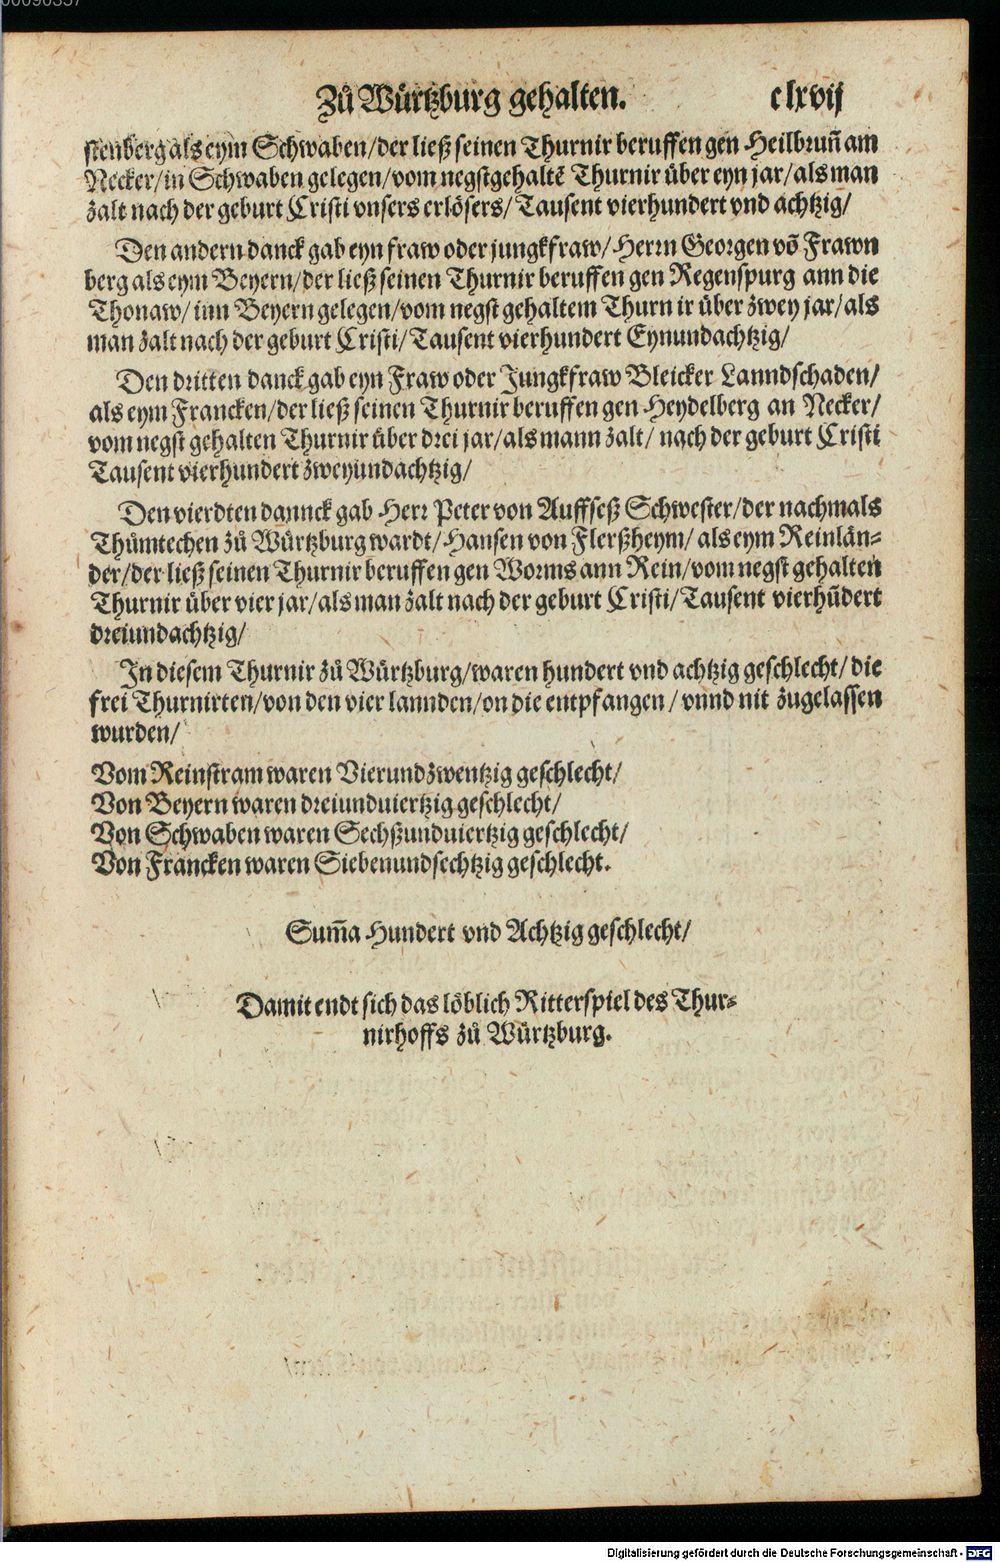 00090357
Zů Würtzburg gehalten. clxvij
stenberg als eym Schwaben/der ließ seinen Thurnir beruffen gen Heilbrun̄ am
Necker/in Schwaben gelegen/vom negstgehaltē Thurnir über eyn jar/als man
zalt nach der geburt Cristi vnsers erlösers/ Tausent vierhundert vnd achtzig/
Den andern danck gab eyn fraw oder jungkfraw/Herrn Georgen vō Frawn
berg als eym Beyern/der ließ seinen Thurnir beruffen gen Regenspurg ann die
Thonaw/ inn Beyern gelegen/vom negst gehaltem Thurn ir über zwey jar/als
man zalt nach der geburt Cristi/Tausent vierhundert Eynundachtzig/
Den dritten danck gab eyn Fraw oder Jungkfraw Bleicker Lanndschaden/
als eym Francken/der ließ seinen Thurnir beruffen gen Heydelberg an Necker/
vom negst gehalten Thurnir über drei jar/als mann zalt/ nach der geburt Cristi
Tausent vierhundert zweyundachtzig/
Den vierdten dannck gab Herr Peter von Auffseß Schwester/der nachmals
Thůmtechen zů Würtzburg wardt/Hansen von Flerßheym/ als eym Reinlän-
der/der ließ seinen Thurnir beruffen gen Worms ann Rein/vom negst gehalten
Thurnir über vier jar/als man zalt nach der geburt Cristi/Tausent vierhūdert
dreiundachtzig/
In diesem Thurnir zů Würtzburg/waren hundert vnd achtzig geschlecht/ die
frei Thurnirten/von den vier lannden/on die entpfangen/ vnnd nit zugelassen
wurden/
Vom Reinstram waren Vierundzwentzig geschlecht/
Von Beyern waren dreiunduiertzig geschlecht/
Von Schwaben waren Sechßunduiertzig geschlecht/
Von Francken waren Siebenundsechtzig geschlecht.
Sum̄a Hundert vnd Achtzig geschlecht/
Damit endt sich das löblich Ritterspiel des Thur-
nirhoffs zů Würtzburg.
Digitalisierung gefördert durch die Deutsche Forschungsgemeinschaft - DFG